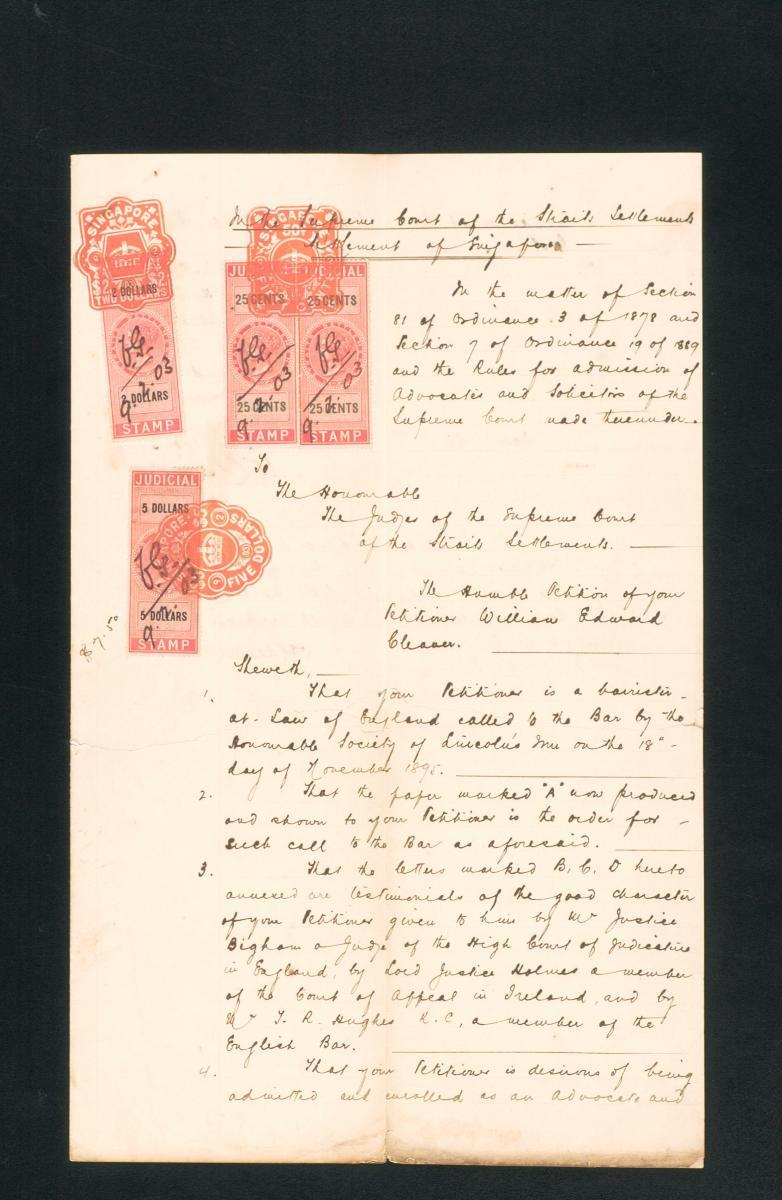 In the Supreme Court of the Straits Settlements
Settlement of Singapore
SINGAPORE
TWO DOLLARS
2 DOLLARS
2 DOLLARS
STAMP
9.2.03
SINGAPORE
50
JUDICIAL
25 CENTS
25 CENTS
STAMP
9.2.03
JUDICIAL
25 CENTS
25 CENTS
STAMP
9.2.03
In the matter of Section
81 of Ordinance 3 of 1878 and
Section 7 of Ordinance 19 of 1889
and the Rules for admission of
Advocates and Solicitors of the
Supreme Court made thereunder.
To
The Honourable
The Judges of the Supreme Court
of the Straits Settlements.
JUDICIAL
5 DOLLARS
5 DOLLARS
STAMP
9.2.03
FIVE DOLLARS
$7.50
The Humble Petition of your
Petitioner William Edward
Cleaver.
Sheweth,
1. That your Petitioner is a barrister-
at-Law of England called to the Bar by the
Honourable Society of Lincoln's Inn on the 18th
day of November 1895.
2. That the paper marked "A" now produced
and shown to your Petitioner is the order for
such call to the Bar as aforesaid.
3. That the letters marked B, C, D hereto
annexed are testimonials of the good character
of your Petitioner given to him by Mr Justice
Bigham a Judge of the High Court of Judicature
in England, by Lord Justice Holmes a member
of the Court of Appeal in Ireland, and by
Mr T. R. Hughes K.C, a member of the
English Bar.
4. That your Petitioner is desirous of being
admitted and enrolled as an Advocate and